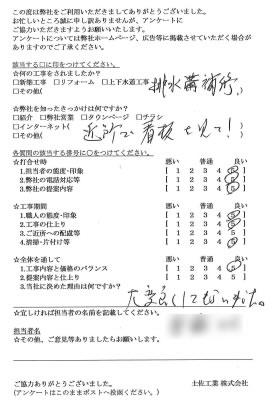 この度は弊社をご利用いただきましてありがとうございました。
お忙しいところ誠に申し訳ありませんが、アンケートに
ご協力いただきますようお願いいたします。
アンケートについては弊社ホームページ、広告等に掲載させていただく場合が
ありますのでご了承ください。
該当する□に印をつけてください。
☆何の工事をされましたか?
□新築工事 □リフォーム □上下水道工事
□その他( 排水溝補修 )
☆弊社を知ったきっかけは何ですか?
□紹介 □弊社営業 □タウンページ □チラシ
□インターネット(
□その他( 近所で看板を見て! )
各質問の該当する番号に○をつけてください。
☆打合せ時 悪い 普通 良い
1.担当者の態度・印象 [ 1 2 3 4 5 ]
2.弊社の電話対応等 [ 1 2 3 4 5 ]
3.弊社の提案内容 [ 1 2 3 4 5 ]
☆工事期間 悪い 普通 良い
1.職人の態度・印象 [ 1 2 3 4 5 ]
2.工事の仕上り [ 1 2 3 4 5 ]
3.ご近所への配慮等 [ 1 2 3 4 5 ]
4.清掃・片付け等 [ 1 2 3 4 5 ]
☆全体を通して 悪い 普通 良い
1.工事内容と価格のバランス [ 1 2 3 4 5 ]
2.提案内容と仕上り [ 1 2 3 4 5 ]
3.当社に決めた理由は何ですか?
大変良くして
☆宜しければ担当者の名前を記載してください。
担当者名
☆その他、ご意見等ありましたらお願いします。
ご協力ありがとうございました。 土佐工業 株式会社
(アンケートはこのままポストへ投函ください。)